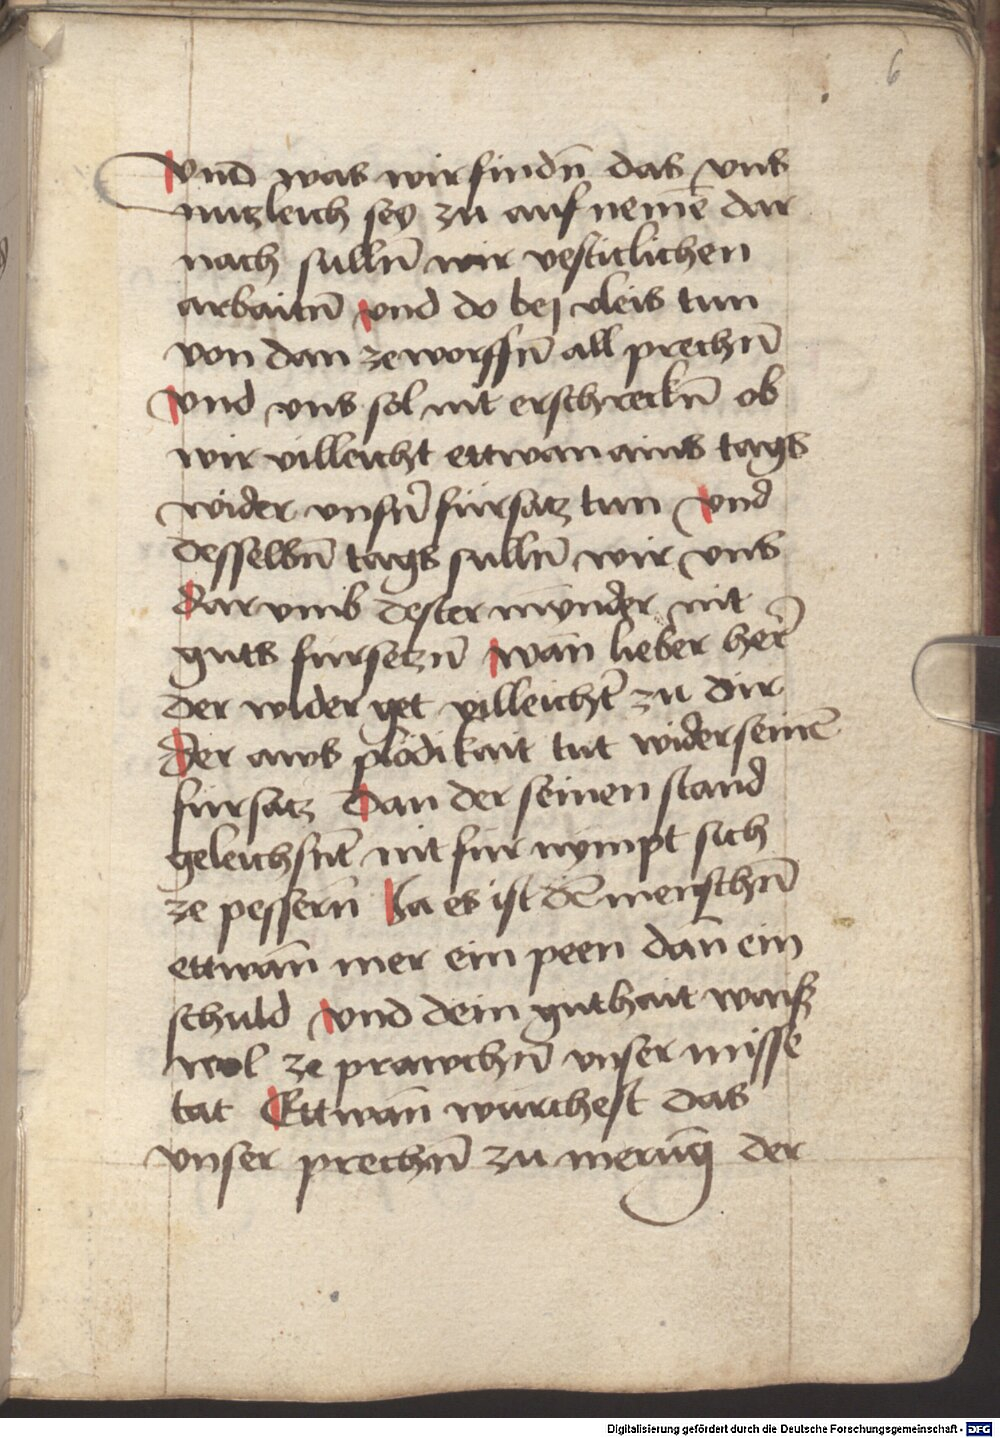 6
Vnd was wir findn̄ das vns
nutzleich sey zu auf nemē dar
nach sulln̄ wir vesticlichen
arbaitn̄ vnd do bej vleis tun
von dan ze worffn̄ all prechn̄
vnd vns sol nit erschreckn̄ ob
wir villeicht ettwan ains tags
wider vnsn̄ fürsatz tun vnd
desselbn̄ tags sulln̄ wir vns
Dar vmb dester mynder nit
guts fürsetzn̄ wan lieber her̄
der wider get villeicht zu dir
Der aws plödikait tut wider seinē
fürsatz Dan der seinen stand
geleichsnt nit für nympt sich
ze pessern̄ Ja es ist dē menschn̄
ettwan̄ mer ein peen dan̄ ein
schuld vnd dein guthait waiß
wol ze prawchn̄ vnser misse
tat Ettwan̄ würchest das
vnser prechn̄ zu merūg der
Digitalisierung gefördert durch die Deutsche Forschungsgemeinschaft - DFG